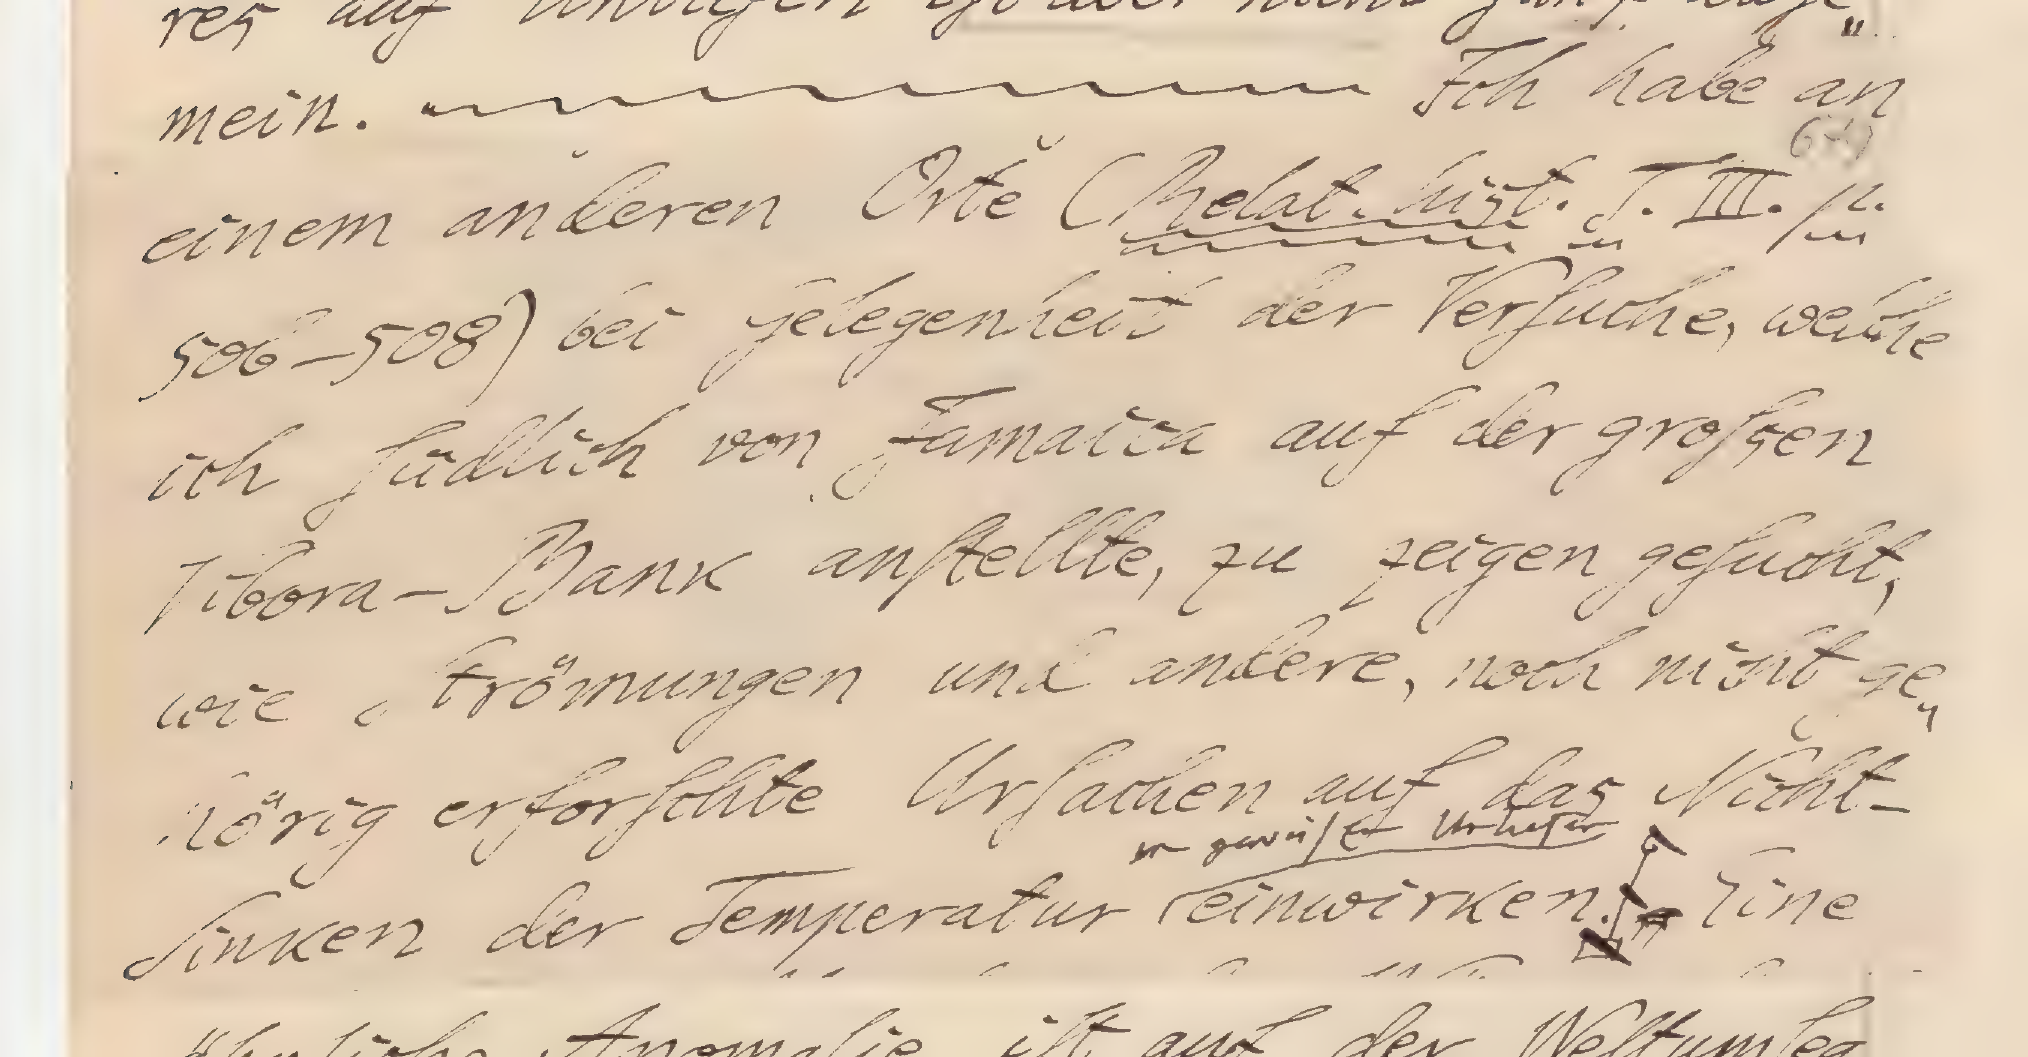 res auf Untiefen ist aber nicht ganz allge„
mein. Ich habe an
einem anderen Orte (Relat. hist. T. III. p.
506–508) bei Gelegenheit der Versuche, welche
ich südlich von Jamaica auf der großen
Vibora–Bank anstellte, zu zeigen gesucht,
wie Strömungen und andere, noch nicht ge„
hörig erforschte Ursachen auf das Nicht-
sinken der Temperatur einwirken. Eine
ähnliche Anomalie ist auf der